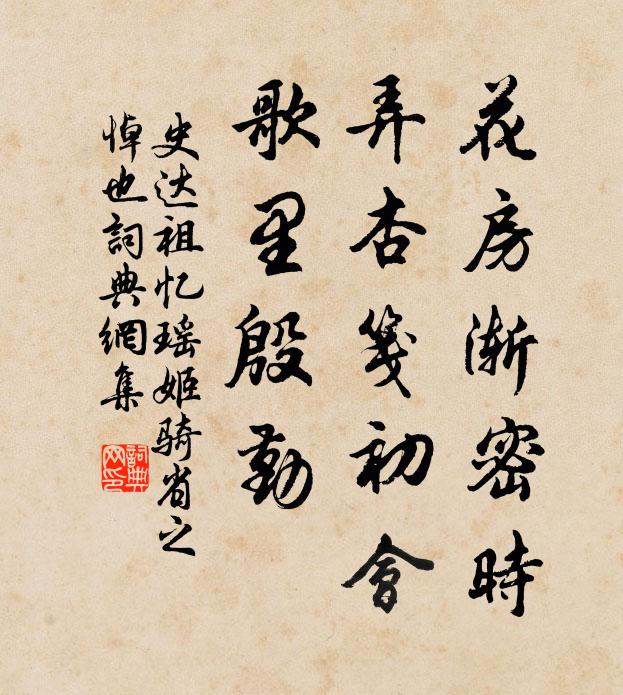 花房渐密時
弄杏箋初會
歌里殷勤
史达祖忆瑶姬骑省之
悼也詞典網集
詞典网印